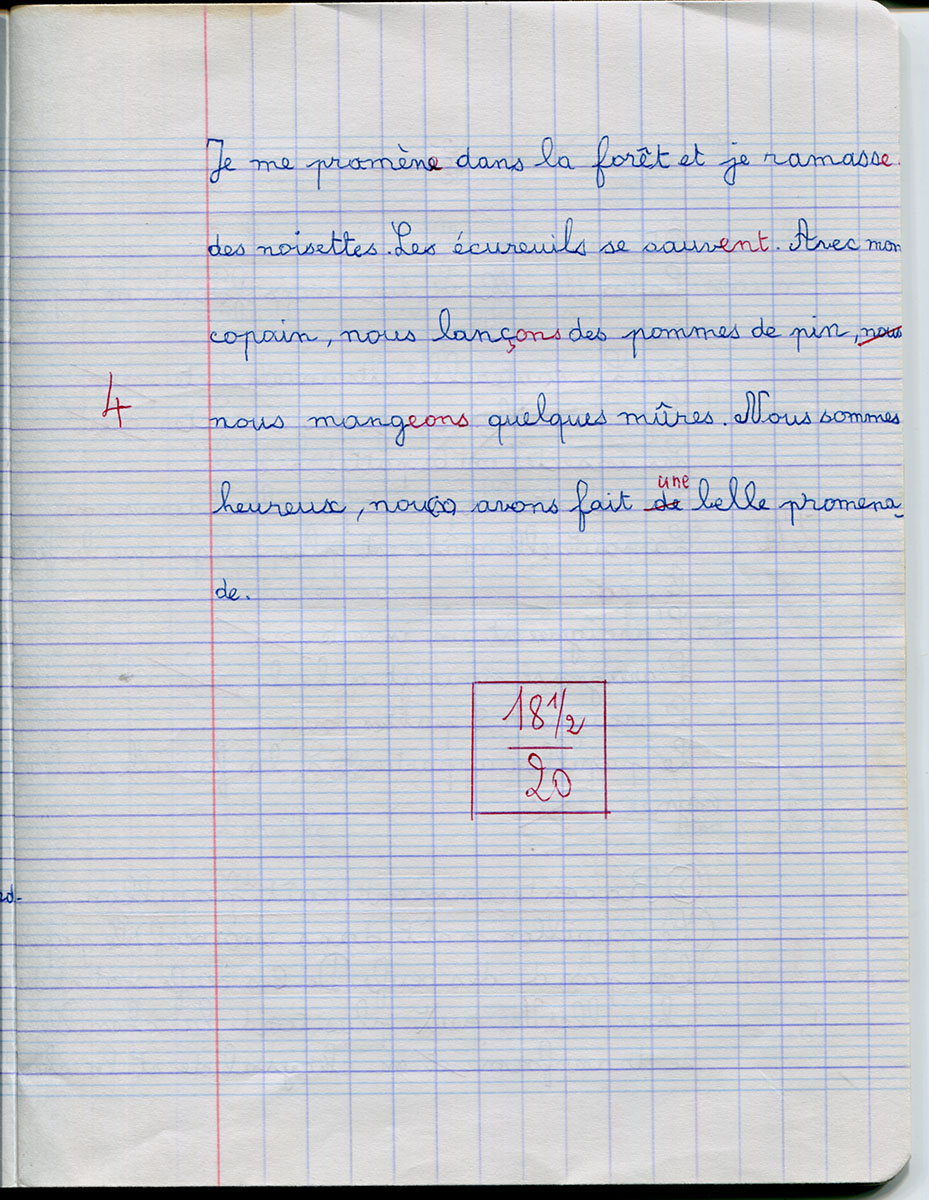 Je me promène dans la forêt et je ramasse
des noisettes. Les écureuils se sauvent. Avec mon
copain, nous lançons des pommes de pin, nous
4
nous mangeons quelques mûres. Nous sommes
une
heureux, nous avons fait de belle promena-
de.
18 1/2
20
ed-